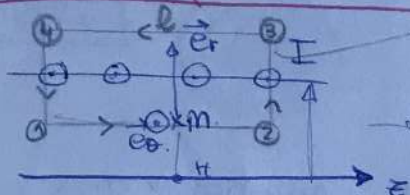 ④ l e⃗r ③ I
① e⃗θ M ②
H z